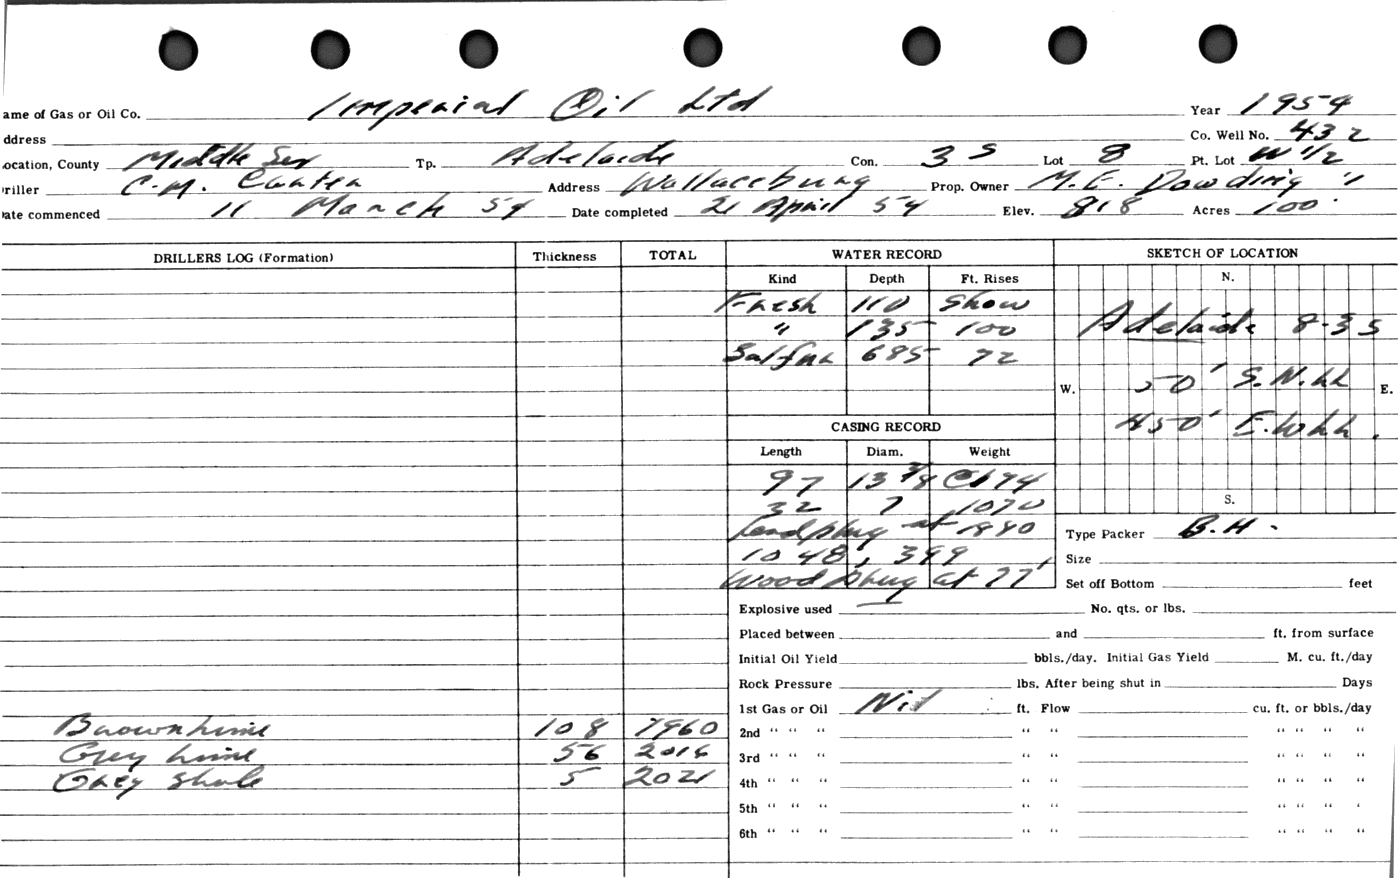 ame of Gas or Oil Co. Imperial Oil Ltd Year 1954
ddress Co. Well No. 432
ocation, County Middle Sex Tp. Adelaide Con. 3 S Lot 8 Pt. Lot W 1/2
riller C.M. Canten Address Wallaceburg Prop. Owner M.E. Dowding
ate commenced 11 March 54 Date completed 21 April 54 Elev. 818 Acres 100
DRILLERS LOG (Formation) Thickness TOTAL WATER RECORD SKETCH OF LOCATION
Kind Depth Ft. Rises N.
Fresh 110 Show
" 135 100 Adelaide 8-3S
Salfur 685 72
W. 50' S.N.LL E.
450' E.WLL.
CASING RECORD
Length Diam. Weight
97 13 3/8 @174
32 7 1070 S.
Leadplug at 1880 Type Packer B.H.
1048, 399 Size
Wood plug at 77' Set off Bottom feet
Explosive used — No. qts. or lbs.
Placed between and ft. from surface
Initial Oil Yield bbls./day. Initial Gas Yield M. cu. ft./day
Rock Pressure lbs. After being shut in Days
1st Gas or Oil Nil ft. Flow cu. ft. or bbls./day
Brown lime 108 1960 2nd " " " " " " " " "
Grey lime 56 2016 3rd " " " " " " " " "
Grey Shale 5 2021 4th " " " " " " " " "
5th " " " " " " " " "
6th " " " " " " " " "